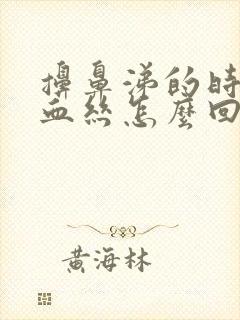 擤鼻涕的時
血絲怎麼回
黃海林